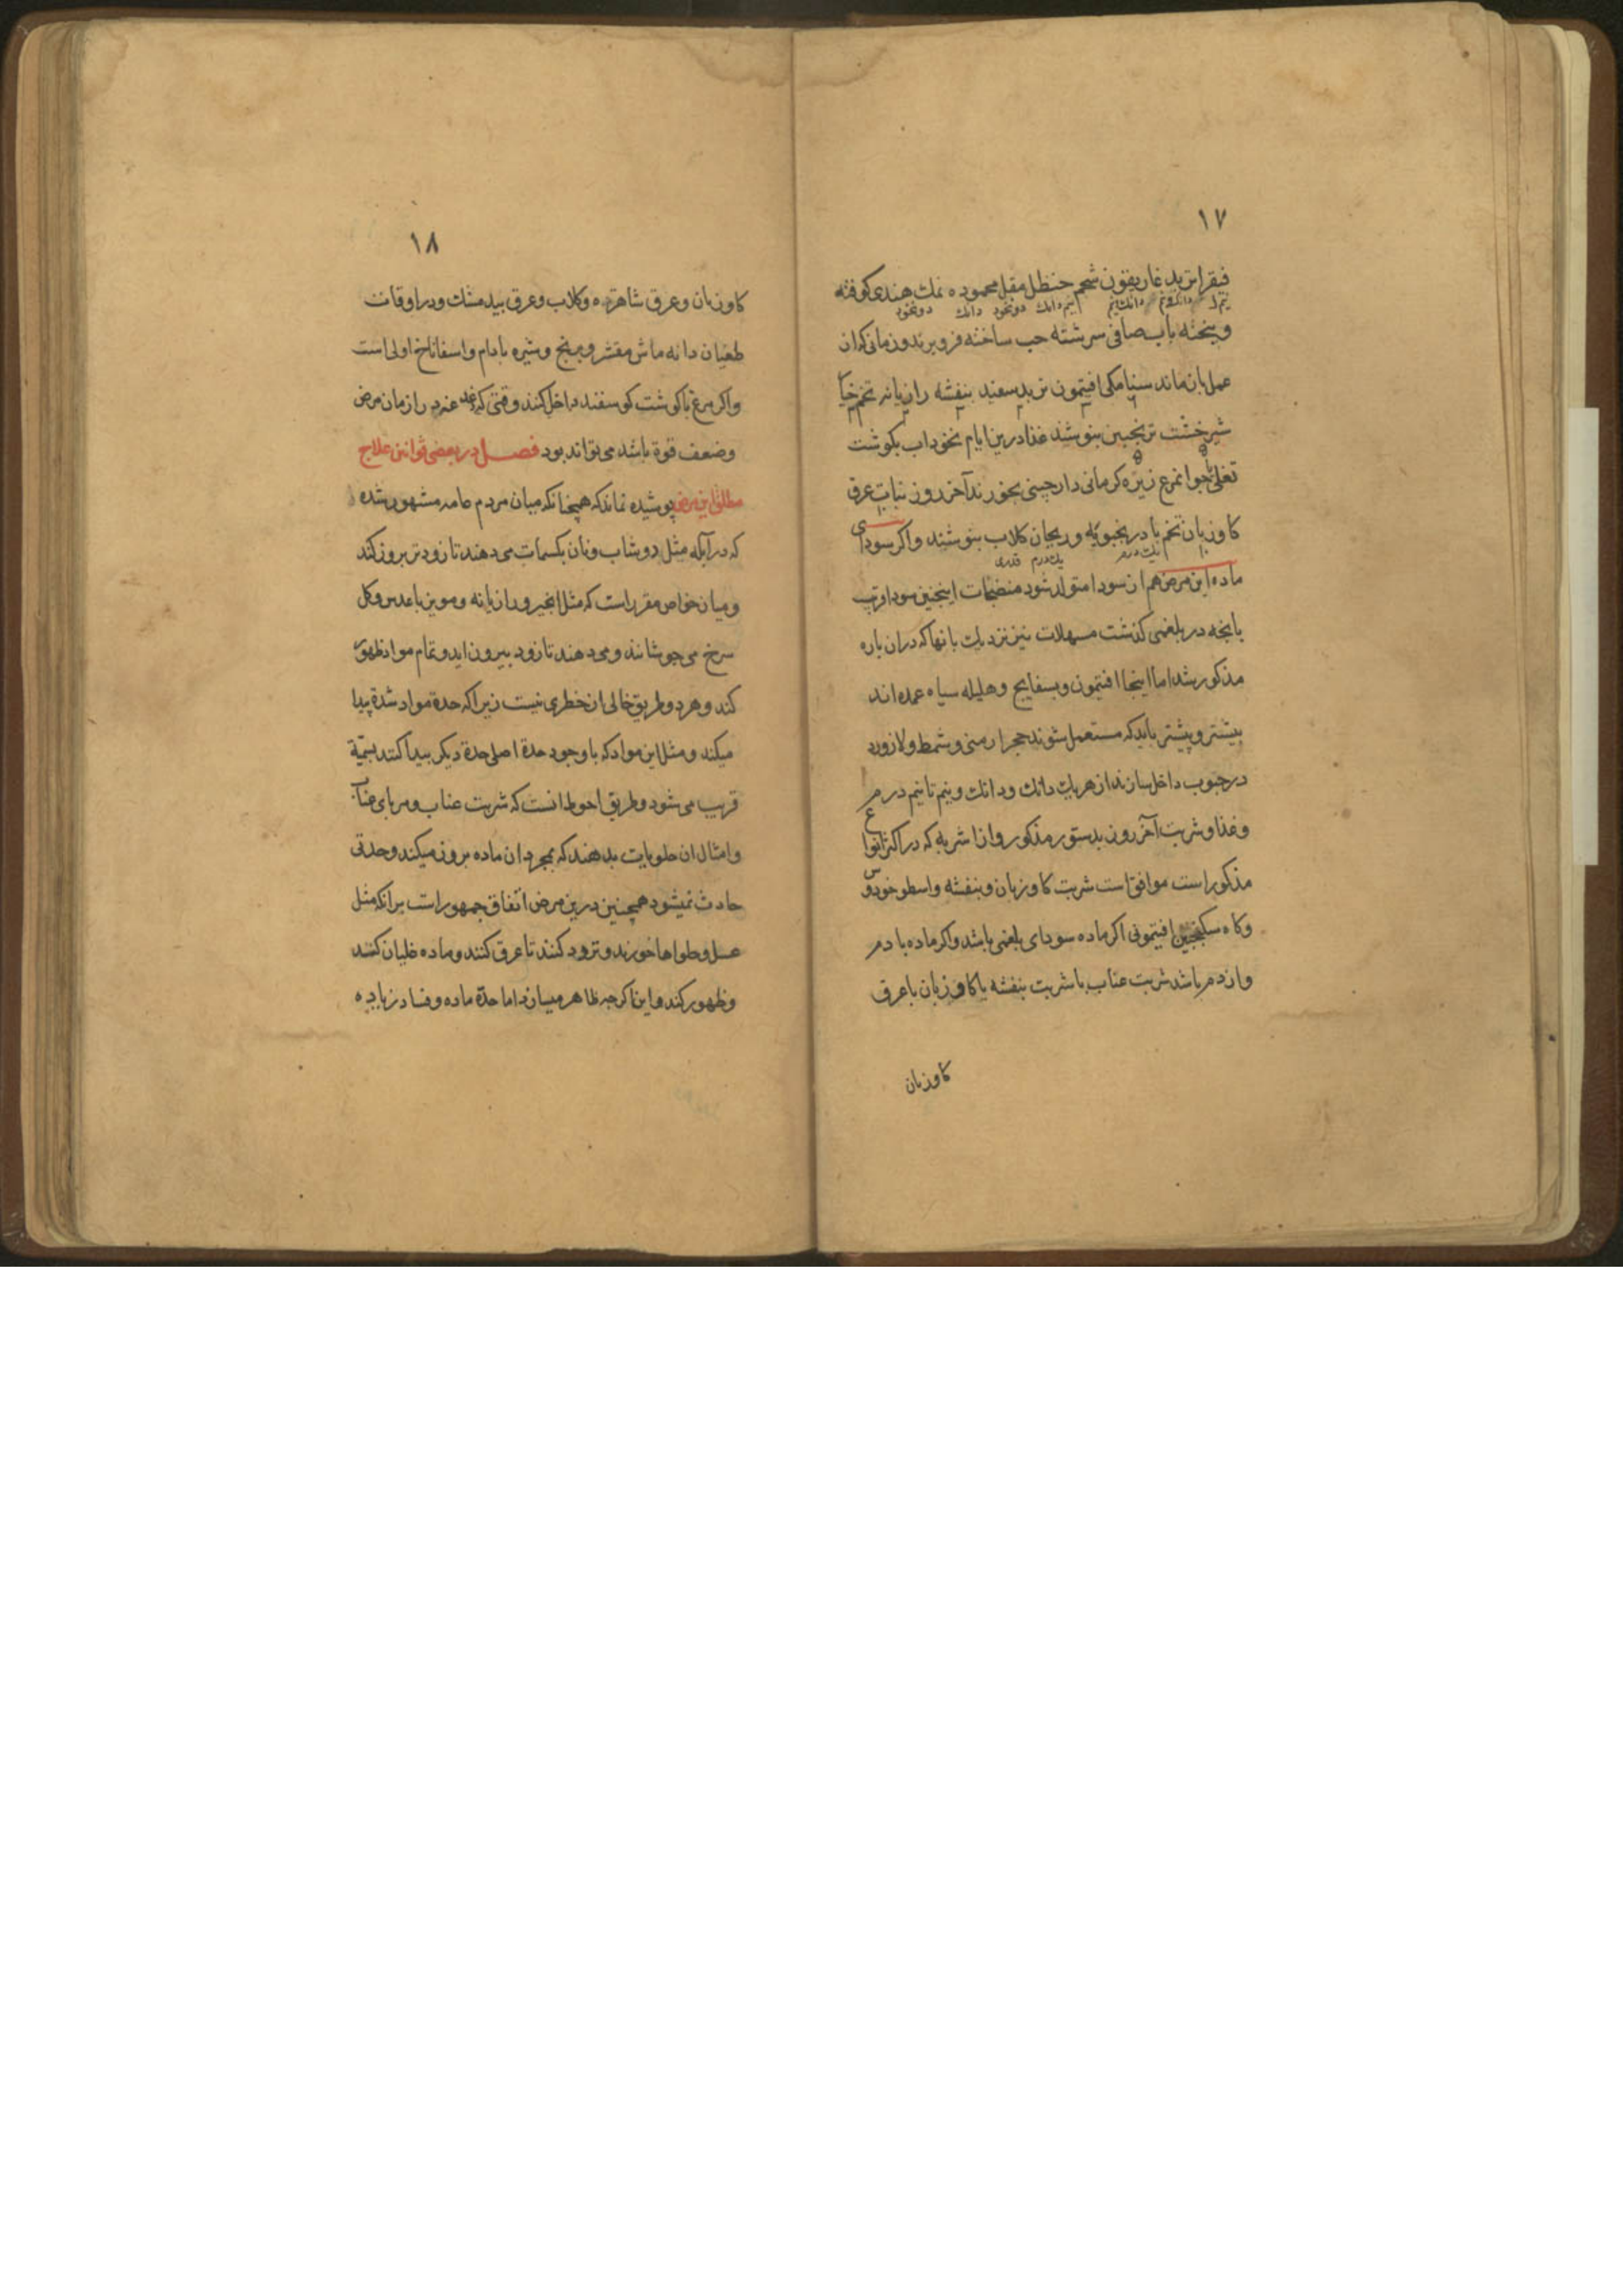 ۱۷
فیقرا تربد غاریقون شحم حنظل مقل محموده نمک هندی کوفته
وبیخته باب صافی سرشته حب ساخته فرو برند وزمانی که ان
عمل بان ماند سنا مکی افتیمون تربد سفید بنفشه رازیانه تخم خیار
شیرخشت ترنجبین بنوشند غذا درین ایام نخوداب بکوشت
زیره کرمانی دارچینی بخورند آخر روز نبات عرق
کاوزبان تخم بادرنجبویه وریحان کلاب بنوشند واکر سودای
یک درم یک درم قدری
ماده این مرض هم از سودا متولد شود منضجات اینچنین سودا قریب
بانچه در بلغمی کذشت مسهلات نیز نزدیک بانها که دران باره
مذکور شد اما اینجا افتیمون وبسفایج وهلیله سیاه عمده اند
بیشتر وپیشتر باید که مستعمل شوند حجر ارمنی ولازورد
در حبوب داخل سازند از هر یک دانک ودانک ونیم تا نیم درم
وغذا وشربت آخر روز بدستور مذکور واز اشربه که در اکثر انواع
مذکور است موافق است شربت کاوزبان وبنفشه واسطوخودوس
وکاه سکنجبین افتیمونی اکر ماده سودای بلغمی باشد واکر ماده با دم
واز دم باشد شربت عناب با شربت بنفشه یا کاوزبان با عرق
کاوزبان
۱۸
کاوزبان وعرق شاهتره وکلاب وعرق بیدمشک ودر اوقات
طغیان دانه ماش مقشر وبرنج وشیره بادام واسفاناخ اولی است
واکر مرغ یا کوشت کوسفند داخل کنند وقتی که از زمان مرض
وضعف قوة باشد می تواند بود فصل در بعضی قوانین علاج
مطلق این مرض پوشیده نماند که همچنانکه میان مردم عامه مشهور شده
که در آبله مثل دوشاب ونان بکسمات می دهند تا زودتر بروز کند
ومیان خواص مقرر است که مثل انجیر ورازیانه ومویز با عدس وکل
سرخ می جوشانند ومی دهند تا زود بیرون اید وتمام مواد ظهور
کند وهر دو طریق خالی از خطری نیست زیرا که حدة مواد شدة پیدا
میکند ومثل این مواد که با وجود حدة اصلی حدة دیکر پیدا کند بسمیة
قریب می شود وطریق احوط انست که شربت عناب ومربای عناب
وامثال ان حلویات بدهند که بمجرد ان ماده بروز میکند وحدتی
حادث نمیشود همچنین درین مرض اتفاق جمهور است برانکه مثل
عسل وحلواها خورند وتردد کنند تا عرق کنند وماده غلیان کند
وظهور کند واین اکرچه ظاهر میسازد اما حدة ماده وفساد زیاده